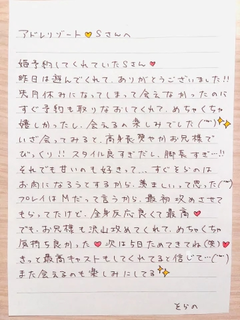 アドレリゾート Sさんへ
姫予約してくれていたSさん
昨日は遊んでくれて、ありがとうございました!!
突然休みになってしまって会えなかったのに
すぐ予約も取りなおしてくれて、めちゃくちゃ
嬉しかったし、会えるの楽しみでした
いざ会ってみるて、高身長爽やかお兄様で
びっくり!! スタイル良すぎだし、脚長すぎ…!!
それでも甘いもの好きって…すぐそらのは
お肉になろうとするから、羨ましいって思った
プレイはMだって言うから、最初攻めさせて
もらってたけど、全身反応良くて最高
でも、お兄様も沢山攻めてくれて、めちゃくちゃ
気持ち良かった 次は5日ためてきてね(笑)
きって最高キャストもしてくれてると信じて…
また会えるのも楽しみにしてる
そらの